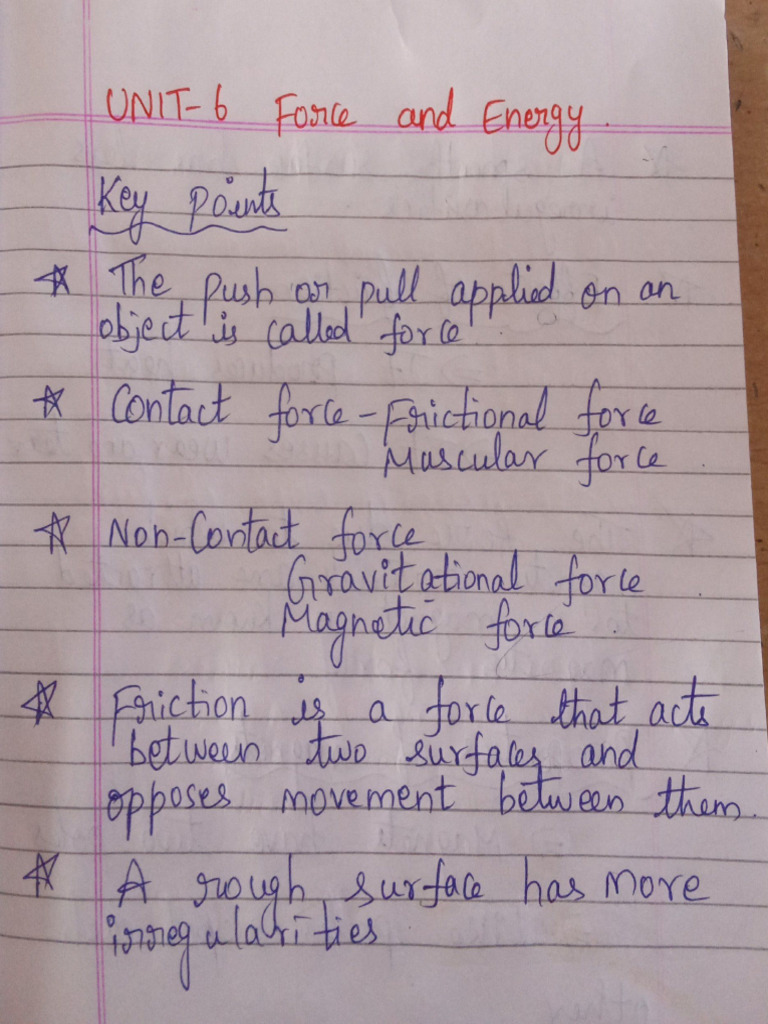 UNIT-6 Force and Energy.
Key points
☆ The push or pull applied on an
object is called force
☆ Contact force - Frictional force
Muscular force.
☆ Non-Contact force
Gravitational force
Magnetic force.
☆ Friction is a force that acts
between two surfaces and
opposes movement between them.
☆ A rough surface has more
irregularities